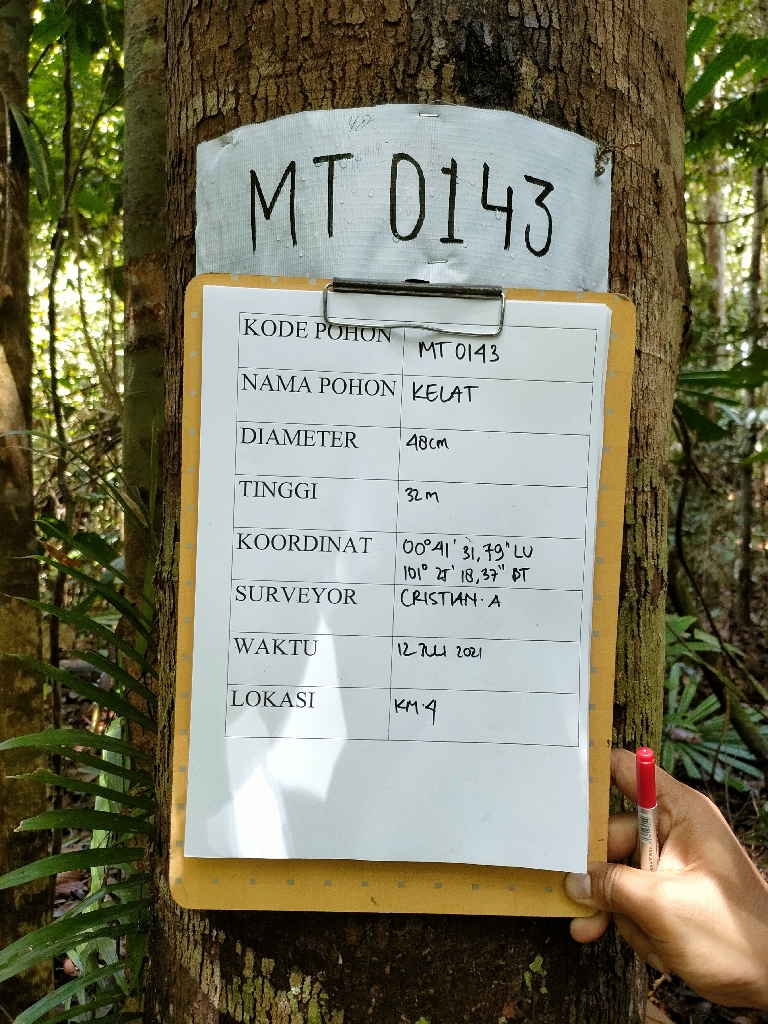 MT 0143
KODE POHON MT 0143
NAMA POHON KELAT
DIAMETER 48cm
TINGGI 32 m
KOORDINAT 00° 41' 31,79" LU
101° 18,37" BT
SURVEYOR CRISTIAN. A
WAKTU 12 JULI 2021
LOKASI KM.4